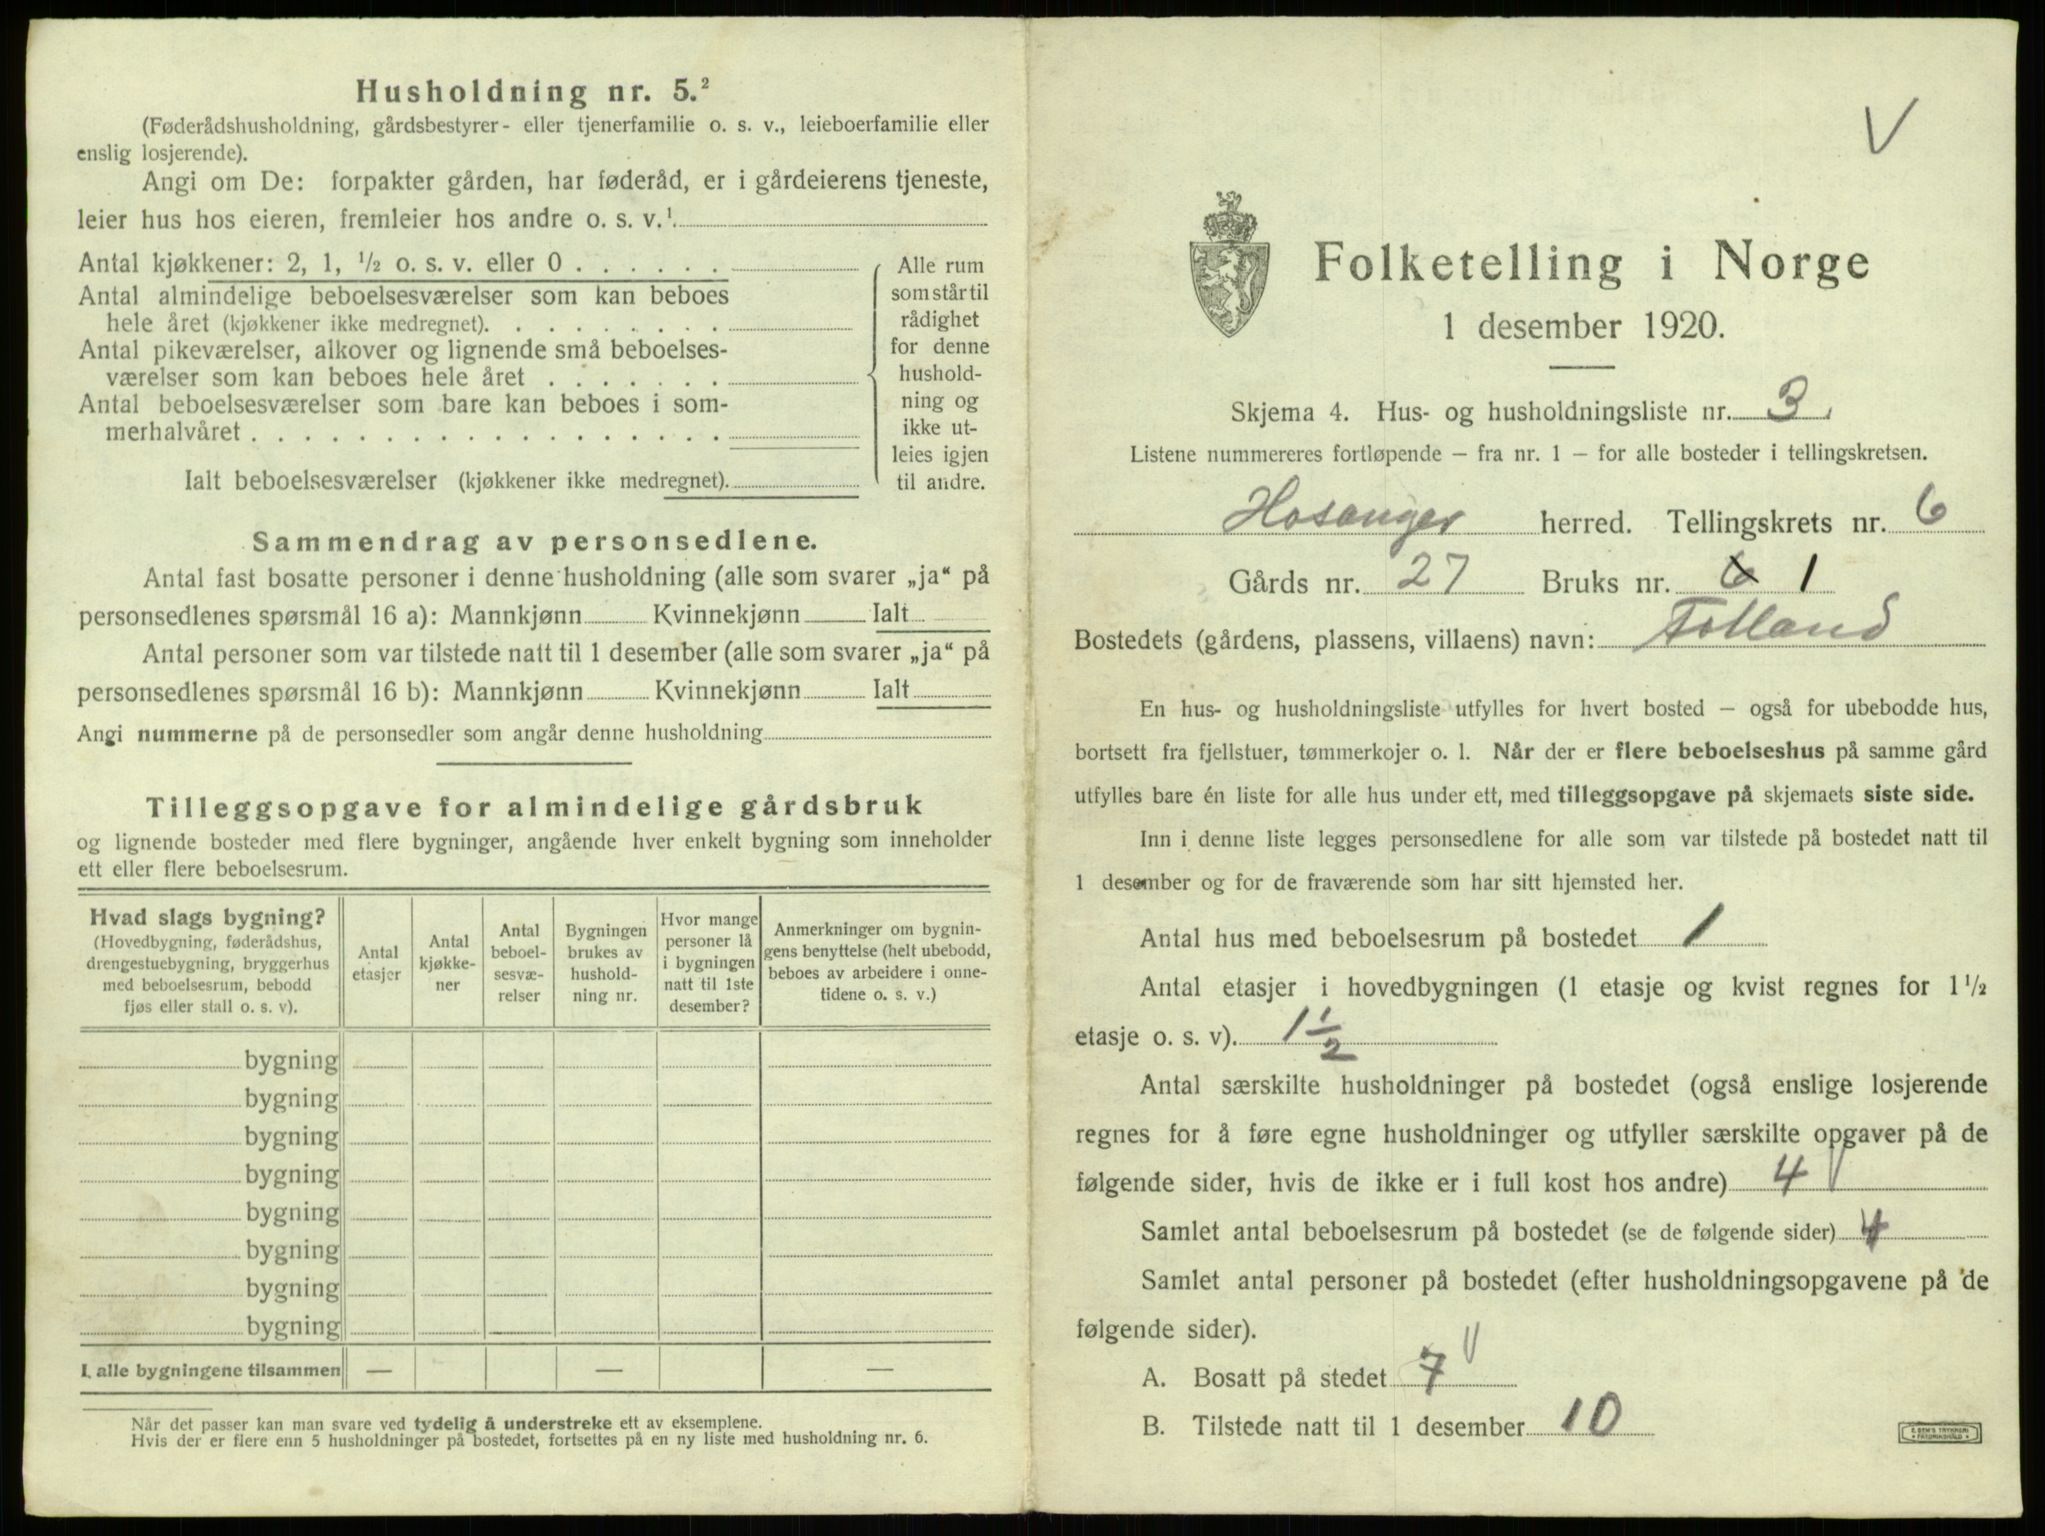 Husholdning nr. 5.²
(Føderådshusholdning, gårdsbestyrer- eller tjenerfamilie o. s. v., leieboerfamilie eller
enslig losjerende).
Angi om De: forpakter gården, har føderåd, er i gårdeierens tjeneste,
leier hus hos eieren, fremleier hos andre o. s. v.¹
Antal kjøkkener: 2, 1, ½ o. s. v. eller 0
Antal almindelige beboelsesværelser som kan beboes
hele året (kjøkkener ikke medregnet).
Antal pikeværelser, alkover og lignende små beboelses-
værelser som kan beboes hele året
Antal beboelsesværelser som bare kan beboes i som-
merhalvåret
Ialt beboelsesværelser (kjøkkener ikke medregnet).
Alle rum
som står til
rådighet
for denne
hushold-
ning og
ikke ut-
leies igjen
til andre.
Sammendrag av personsedlene.
Antal fast bosatte personer i denne husholdning (alle som svarer „ja“ på
personsedlenes spørsmål 16 a): Mannkjønn Kvinnekjønn Ialt
Antal personer som var tilstede natt til 1 desember (alle som svarer „ja“ på
personsedlenes spørsmål 16 b): Mannkjønn Kvinnekjønn Ialt
Angi nummerne på de personsedler som angår denne husholdning
Tilleggsopgave for almindelige gårdsbruk
og lignende bosteder med flere bygninger, angående hver enkelt bygning som inneholder
ett eller flere beboelsesrum.
Hvad slags bygning?
(Hovedbygning, føderådshus,
drengestuebygning, bryggerhus
med beboelsesrum, bebodd
fjøs eller stall o. s. v).
Antal
etasjer
Antal
kjøkke-
ner
Antal
beboel-
sesvæ-
relser
Bygningen
brukes av
hushold-
ning nr.
Hvor mange
personer lå
i bygningen
natt til 1ste
desember?
Anmerkninger om bygnin-
gens benyttelse (helt ubebodd,
beboes av arbeidere i onne-
tidene o. s. v.)
bygning
bygning
bygning
bygning
bygning
bygning
bygning
bygning
I alle bygningene tilsammen — — —
Når det passer kan man svare ved tydelig å understreke ett av eksemplene.
Hvis der er flere enn 5 husholdninger på bostedet, fortsettes på en ny liste med husholdning nr. 6.
V
Folketelling i Norge
1 desember 1920.
Skjema 4. Hus- og husholdningsliste nr. 3.
Listene nummereres fortløpende – fra nr. 1 – for alle bosteder i tellingskretsen.
Hosanger herred. Tellingskrets nr. 6
Gårds nr. 27 Bruks nr. 6 1
Bostedets (gårdens, plassens, villaens) navn: Tolland
En hus- og husholdningsliste utfylles for hvert bosted – også for ubebodde hus,
bortsett fra fjellstuer, tømmerkojer o. l. Når der er flere beboelseshus på samme gård
utfylles bare én liste for alle hus under ett, med tilleggsopgave på skjemaets siste side.
Inn i denne liste legges personsedlene for alle som var tilstede på bostedet natt til
1 desember og for de fraværende som har sitt hjemsted her.
Antal hus med beboelsesrum på bostedet 1
Antal etasjer i hovedbygningen (1 etasje og kvist regnes for 1½
etasje o. s. v). 1½
Antal særskilte husholdninger på bostedet (også enslige losjerende
regnes for å føre egne husholdninger og utfyller særskilte opgaver på de
følgende sider, hvis de ikke er i full kost hos andre) 4 V
Samlet antal beboelsesrum på bostedet (se de følgende sider) 4
Samlet antal personer på bostedet (efter husholdningsopgavene på de
følgende sider).
A. Bosatt på stedet 7 V
B. Tilstede natt til 1 desember 10